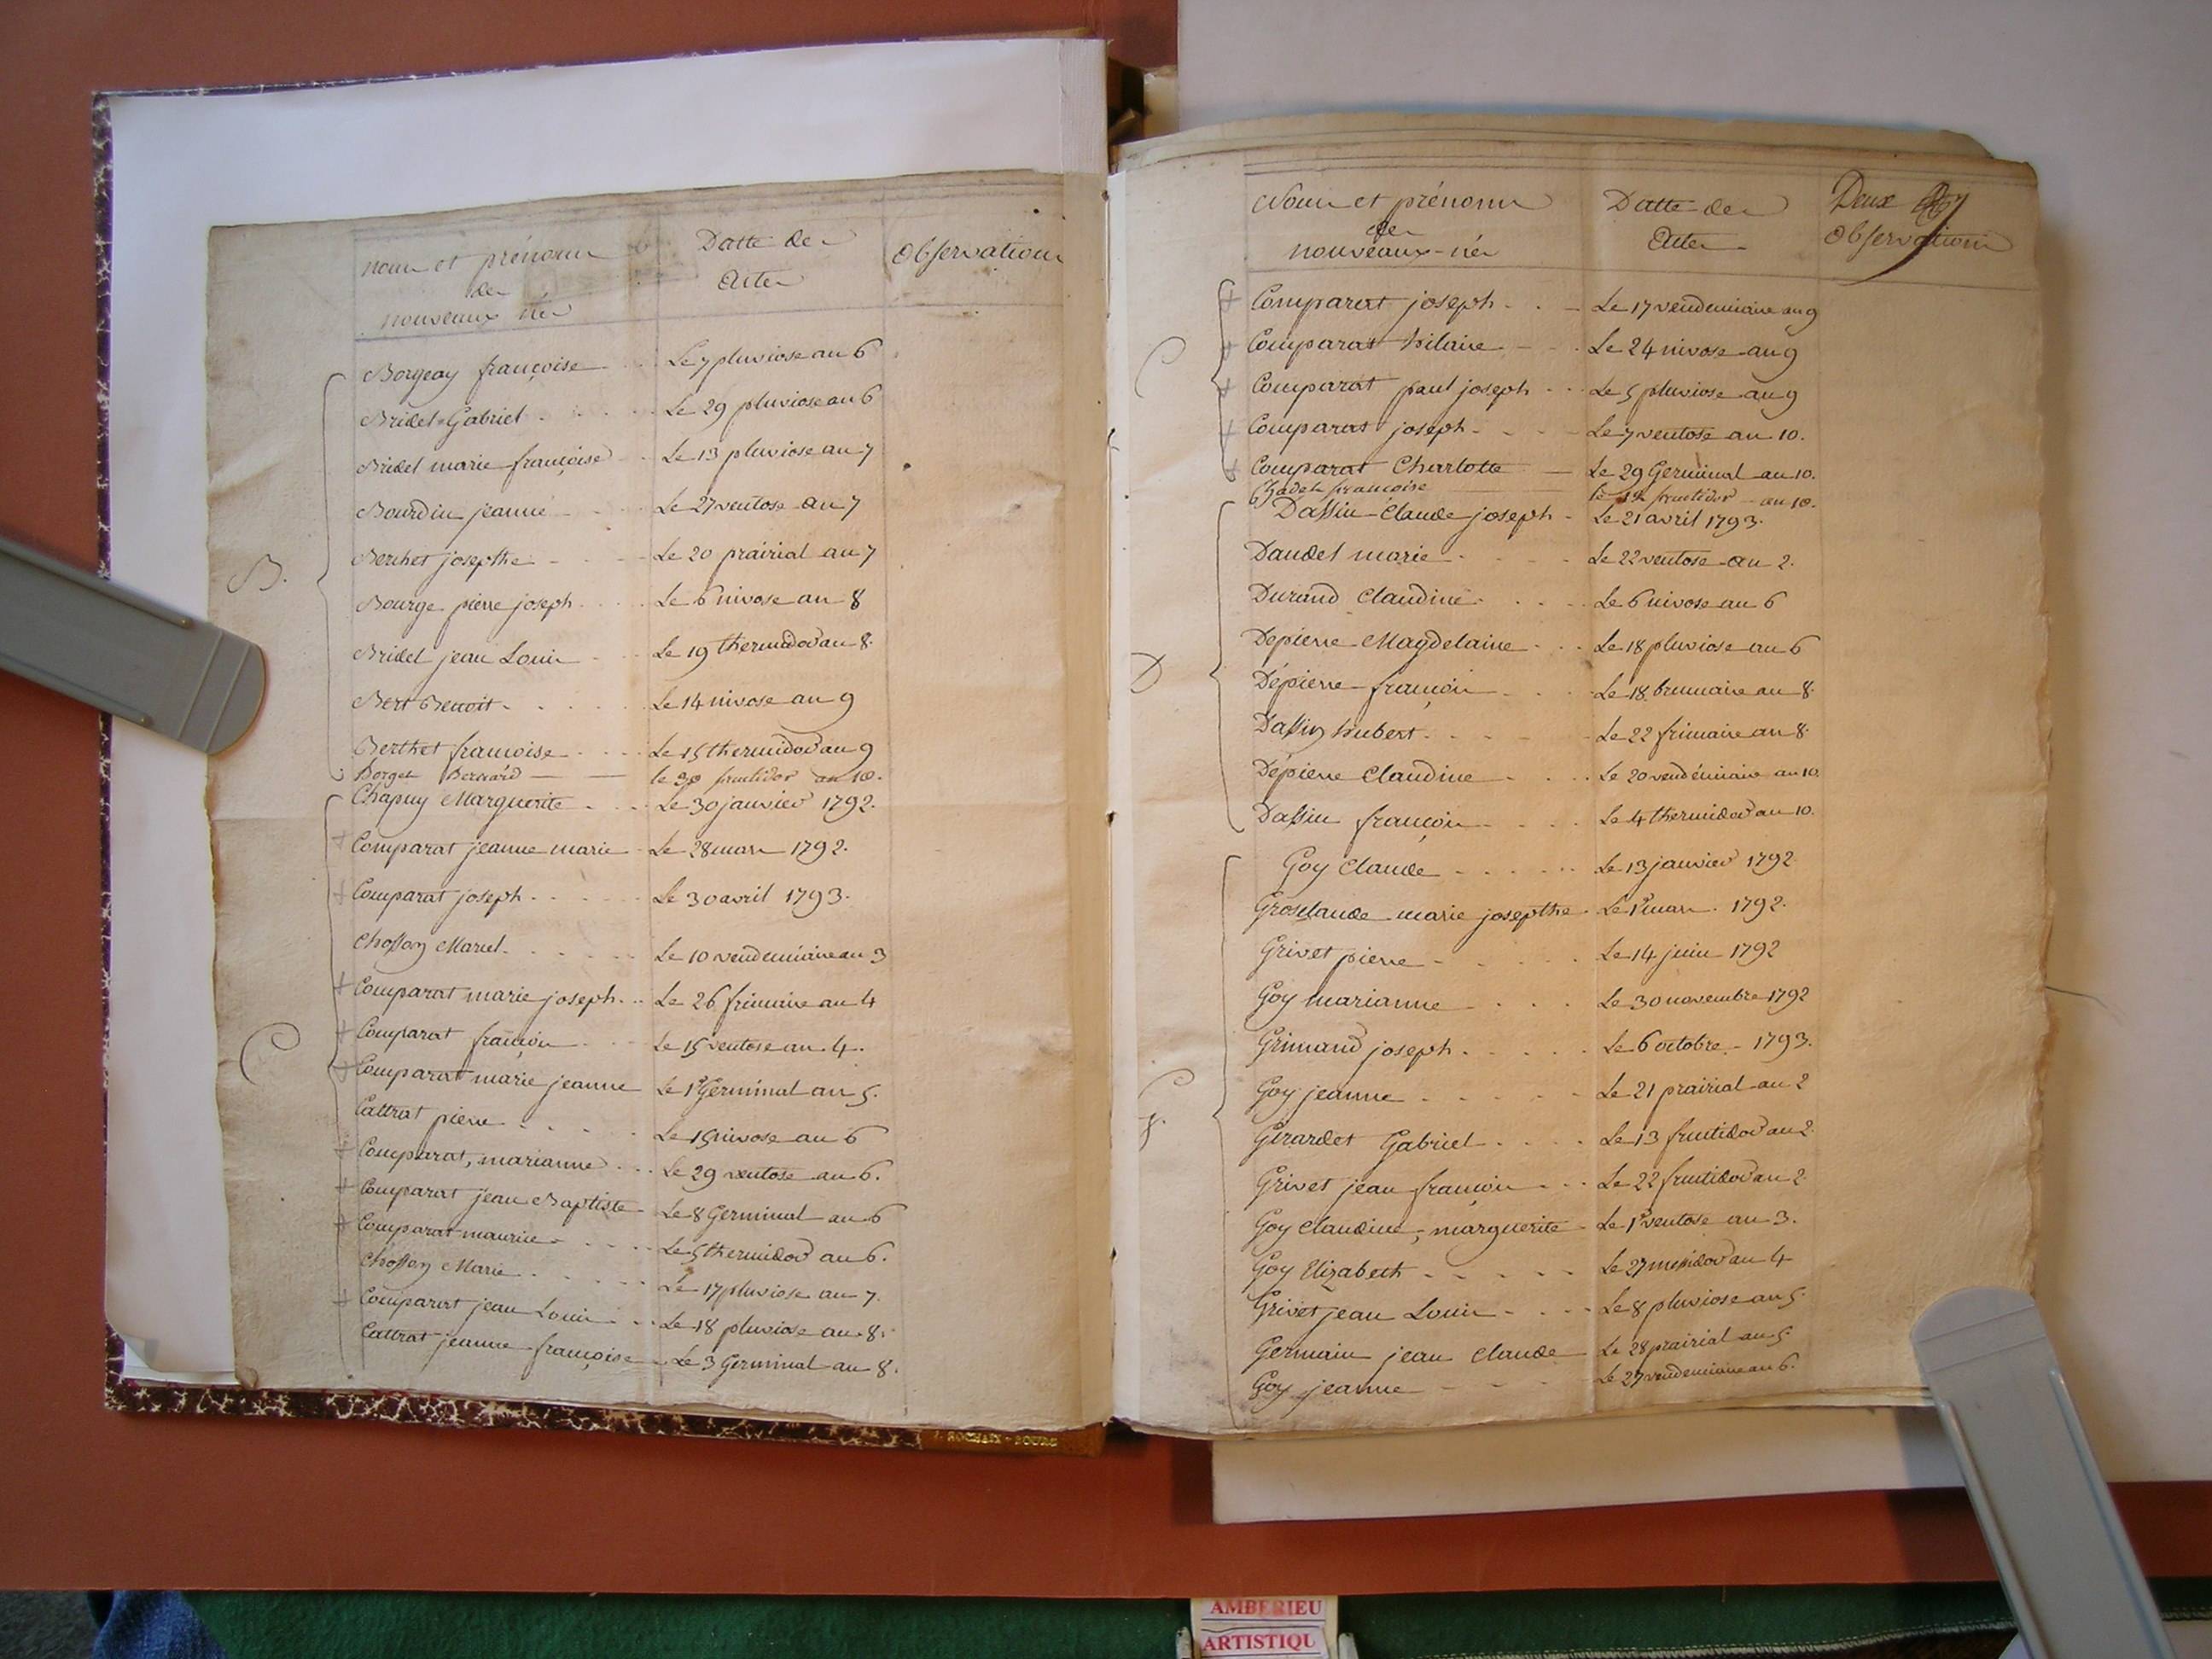 noms et prénoms
des
nouveaux nés
Datte des
Actes
Observations
B.
Borgeay françoise Le 7 pluviose an 6
Bridel Gabriel Le 29 pluviose an 6
Bridel marie françoise Le 13 pluviose an 7
Bourdin jeanne Le 27 ventose an 7
Berthet josepthe Le 20 prairial an 7
Bourge pierre joseph Le 6 nivose an 8
Bridel jean Louis Le 19 thermidor an 8.
Bert Benoit Le 14 nivose an 9
Berthet françoise Le 15 thermidor an 9
Borget Bernard le 20 fructidor an 10.
C
Chapuy Marguerite Le 30 janvier 1792.
+ Comparat jeanne marie Le 28 mars 1792.
+ Comparat joseph Le 30 avril 1793.
Chosson Marcel Le 10 vendemiaire an 3
+ Comparat marie joseph Le 26 frimaire an 4
+ Comparat françois Le 15 ventose an 4.
+ Comparat marie jeanne Le 1er Germinal an 5.
Cattrat pierre Le 15 nivose an 6
+ Comparat, marianne Le 29 ventose an 6.
+ Comparat jean Baptiste Le 8 Germinal an 6
+ Comparat maurice Le 5 thermidor an 6.
Chosson Marie Le 17 pluviose an 7.
+ Comparat jean Louis Le 18 pluviose an 8.
Cattrat jeanne françoise Le 3 Germinal an 8.
J. ROCHAIX - BOURG
Noms et prénoms
des
nouveaux-nés
Datte des
Actes
Deux
Observations
C
+ Comparat joseph Le 17 vendemiaire an 9
+ Comparat hilaire Le 24 nivose an 9
+ Comparat paul joseph Le 5 pluviose an 9
+ Comparat joseph Le 7 ventose an 10.
+ Comparat Charlotte Le 29 Germinal an 10.
françoise le 12 fructidor an 10.
D
Dassin Claude joseph Le 21 avril 1793.
Daudet marie Le 22 ventose an 2.
Durand Claudine Le 6 nivose an 6
Depierre Magdelaine Le 18 pluviose an 6
Dépierre françois Le 18 brumaire an 8.
Dassin hubert Le 22 frimaire an 8.
Dépierre Claudine Le 20 vendémiaire an 10.
Dassin françois Le 4 thermidor an 10.
G.
Goy Claude Le 13 janvier 1792.
Grosclaude marie josepthe Le 1er mars 1792.
Grivet pierre Le 14 juin 1792
Goy marianne Le 30 novembre 1792
Grimand joseph Le 6 octobre 1793.
Goy jeanne Le 21 prairial an 2
Girardet Gabriel Le 13 fructidor an 2.
Grivet jean françois Le 22 fructidor an 2.
Goy Claudine, marguerite Le 1er ventose an 3.
Goy Elizabeth Le 27 messidor an 4
Grivet jean Louis Le 8 pluviose an 5.
Germain jean Claude Le 28 prairial an 5.
Goy jeanne Le 27 vendemiaire an 6.
AMBERIEU
ARTISTIQU